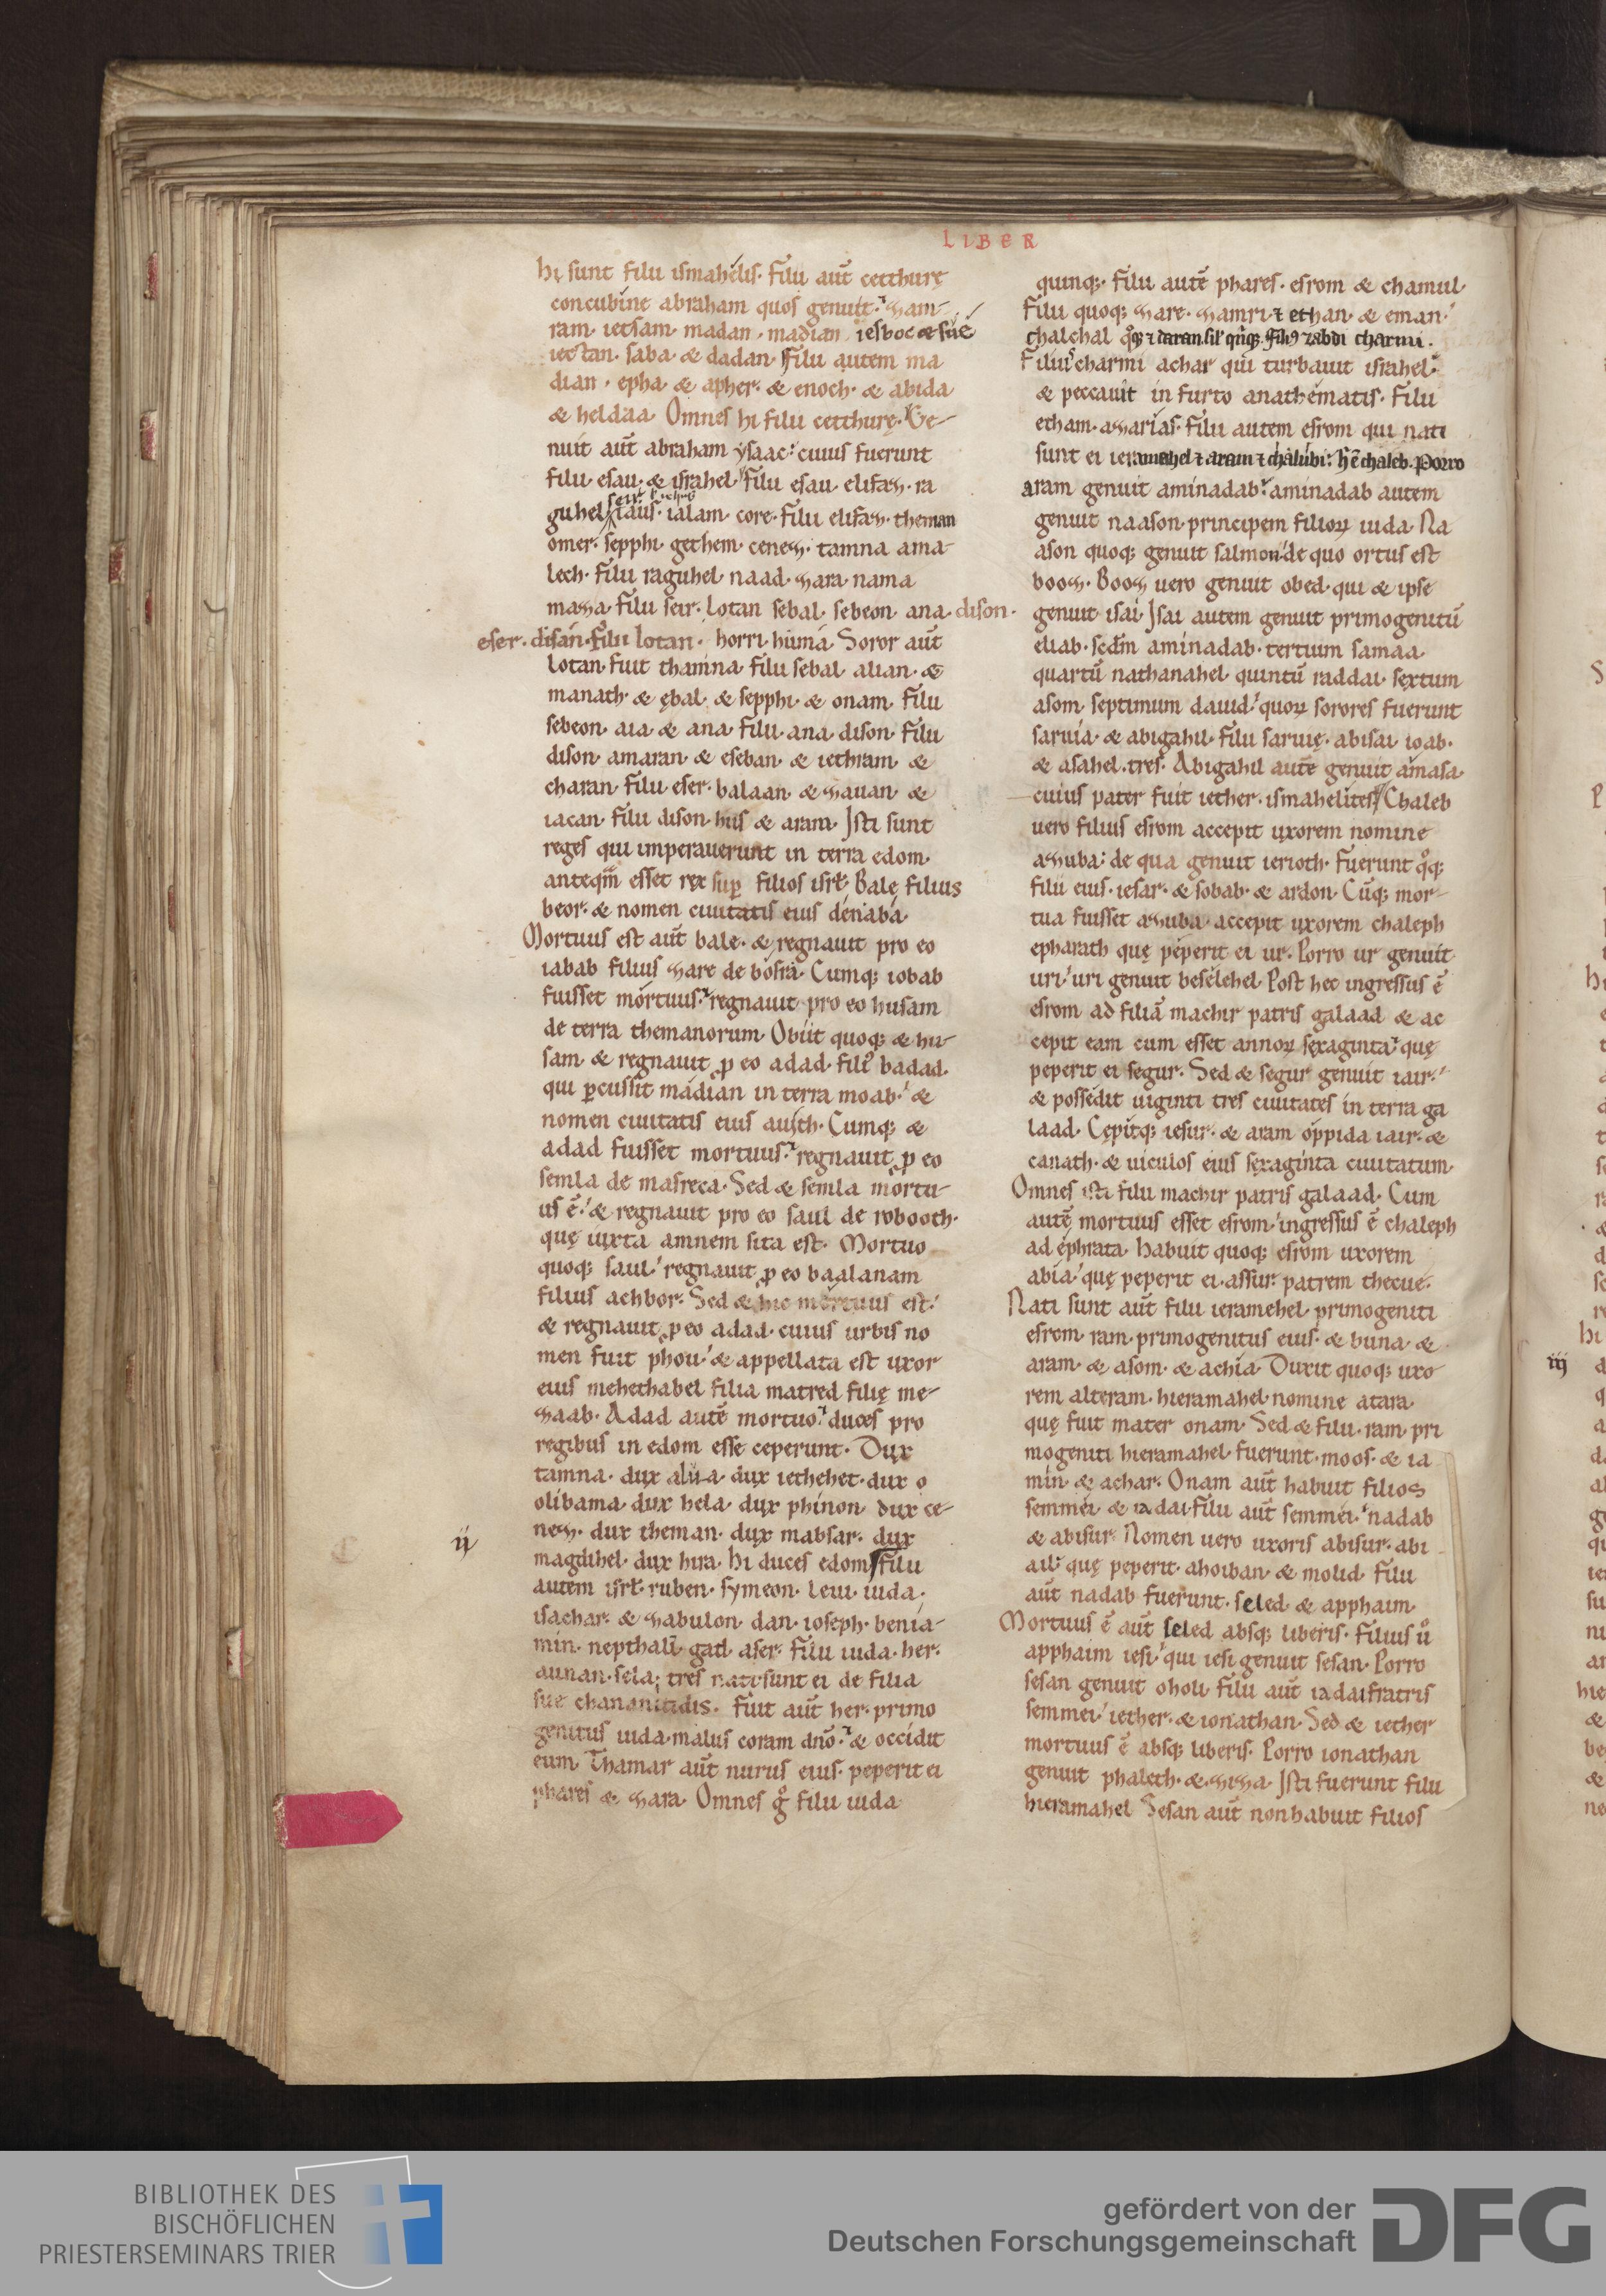 LIBER
hi sunt filii ismahelis. Filii aut̄ cetthurę
concubine abraham quos genuit. zam-
ram. iecsam. madan. madian. iesboc & sue
iectan. saba. & dadan. Filii autem ma
dian. epha. & apher. & enoch. & abida
& heldaa. Omnes hi filii cetthurę. Ge-
nuit aut̄ abraham ysaac: cuius fuerunt
filii esau. & israhel. Filii esau. elifaz. ra
guhel. iaus. ialam. core. Filii elifaz. theman
omer. sepphi. gethem. cenez. tamna. ama-
lech. Filii raguhel. naad. zara. nama
maza. Filii seir. Lotan. sebal. sebeon. ana. dison.
eser. disan. Filii lotan. horri. huma. Soror aut̄
lotan. fuit thamna. Filii sebal. alian. &
manath. & ębal. & sepphi. & onam. Filii
sebeon. aia. & ana. Filii. ana. dison. Filii
dison. amaran. & eseban. & iethram. &
charan. Filii eser. balaan. & zauan. &
iacan. Filii dison. hus & aram. Isti sunt
reges qui imperauerunt in terra edom.
anteqm̄ esset rex sup̄ filios isrł. Balę filius
beor. & nomen ciuitatis eius denaba.
Mortuus est aut̄ bale. & regnauit pro eo
iabab filius zare de bosra. Cumq; iobab
fuisset mortuus. regnauit pro eo husam
de terra themanorum. Obiit quoq; & hu-
sam. & regnauit p̱ eo adad. fili᾽ badad.
qui p̱cussit madian in terra moab. &
nomen ciuitatis eius auith. Cumq; &
adad fuisset mortuus. regnauit p̱ eo
semla de masreca. Sed & semla mortu-
us ē. & regnauit pro eo saul de robooth.
quę iuxta amnem sita est. Mortuo
quoq; saul. regnauit p̱ eo baalanam
filius achbor. Sed & hic mortuus est.
& regnauit p̱ eo adad. cuius urbis no
men fuit phou. & appellata est uxor
eius mehethabel filia matred filię me-
zaab. Adad autē mortuo. duces pro
regibus in edom esse ceperunt. Dux
tamna. dux alua. dux iethehet. dux o
olibama. dux hela. dux phinon. dux ce-
nez. dux theman. dux mabsar. dux
ij
magdihel. dux hira. Hi duces edom. Filii
autem isrł. ruben. symeon. leui. iuda.
isachar. & zabulon. dan. ioseph. benia-
min. nepthali. gad. aser. Filii iuda. her.
aunan. sela. tres nati sunt ei de filia
sue chananitidis. Fuit aut̄ her. primo
genitus iuda. malus coram dn̄o. & occidit
eum. Thamar aut̄ nurus eius. peperit ei
phares & zara. Omnes g᷉ filii iuda
quinq;. Filii autē phares. esrom & chamul.
Filii quoq; zare. zamri. & ethan. & eman.
chalchal q᷉q; & daran. sil᾽ q̄nq;. Fili᾽ zabdi charmi.
Filius charmi achar qui turbauit israhel.
& peccauit in furto anathematis. Filii
etham. azarias. Filii autem esrom qui nati
sunt ei ieramahel & aram & chalubi. hē chaleb. Porro
aram genuit aminadab. aminadab autem
genuit naason. principem filioꝝ iuda. Na
ason quoq; genuit salmon. de quo ortus est
booz. Booz uero genuit obed. qui & ipse
genuit isai. Isai autem genuit primogenitū
eliab. scd̄m aminadab. tertium samaa.
quartū nathanahel. quintū raddai. sextum
asom. septimum dauid. quoꝝ sorores fuerunt
saruia. & abigahil. Filii saruię. abisai. ioab.
& asahel. tres. Abigahil autē genuit amasa.
cuius pater fuit iether. ismahelites. Chaleb
uero filius esrom accepit uxorem nomine
azuba. de qua genuit ierioth. Fuerunt q᷉q;
filii eius. iesar. & sobab. & ardon. Cūq; mor-
tua fuisset azuba. accepit uxorem chaleph
epharath quę peperit ei ur. Porro ur genuit
uri. uri genuit beselehel. Post hec ingressus ē
esrom ad filiā machir patris galaad & ac
cepit eam cum esset annoꝝ sexaginta. quę
peperit ei segur. Sed & segur genuit iair.
& possedit uiginti tres ciuitates in terra ga
laad. Cępitq; iesur. & aram oppida iair. &
canath. & uiculos eius sexaginta ciuitatum.
Omnes isti filii machir patris galaad. Cum
autē mortuus esset esrom. ingressus ē chaleph
ad ephrata. Habuit quoq; esrom uxorem
abia. quę peperit ei. assur. patrem thecue.
Nati sunt aut̄ filii ieramehel primogeniti
esrom. ram. primogenitus eius. & buna. &
aram. & asom. & achia. Duxit quoq; uxo
rem alteram. hieramahel. nomine atara.
quę fuit mater onam. Sed & filii. ram. pri
mogeniti hieramahel. fuerunt. moos. & ia
min. & achar. Onam aut̄ habuit filios
semmei. & iadai. Filii aut̄ semmei. nadab
& abisur. Nomen uero uxoris abisur. abi
ail. quę peperit. ahoiban. & molid. Filii
aut̄ nadab fuerunt. seled. & apphaim.
Mortuus ē aut̄ seled absq; liberis. Filius ů
apphaim iesi. qui iesi genuit sesan. Porro
sesan genuit oholi. Filii aut̄ iadai fratris
semmei. iether. & ionathan. Sed & iether
mortuus ē absq; liberis. Porro ionathan
genuit phaleth. & ziza. Isti fuerunt filii
hieramahel. Sesan aut̄ non habuit filios
iij
BIBLIOTHEK DES
BISCHÖFLICHEN
PRIESTERSEMINARS TRIER
gefördert von der
Deutschen Forschungsgemeinschaft
DFG